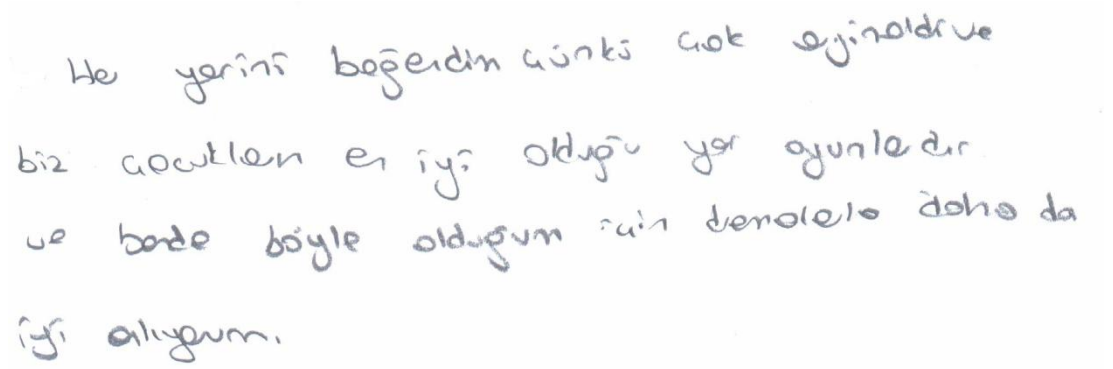 He yerini beğendim çünkü çok eyinoldi ve
biz çocukların en iyi olduğu yer oyunladır
ve bende böyle olduğum için daha da
iyi alıyorum.